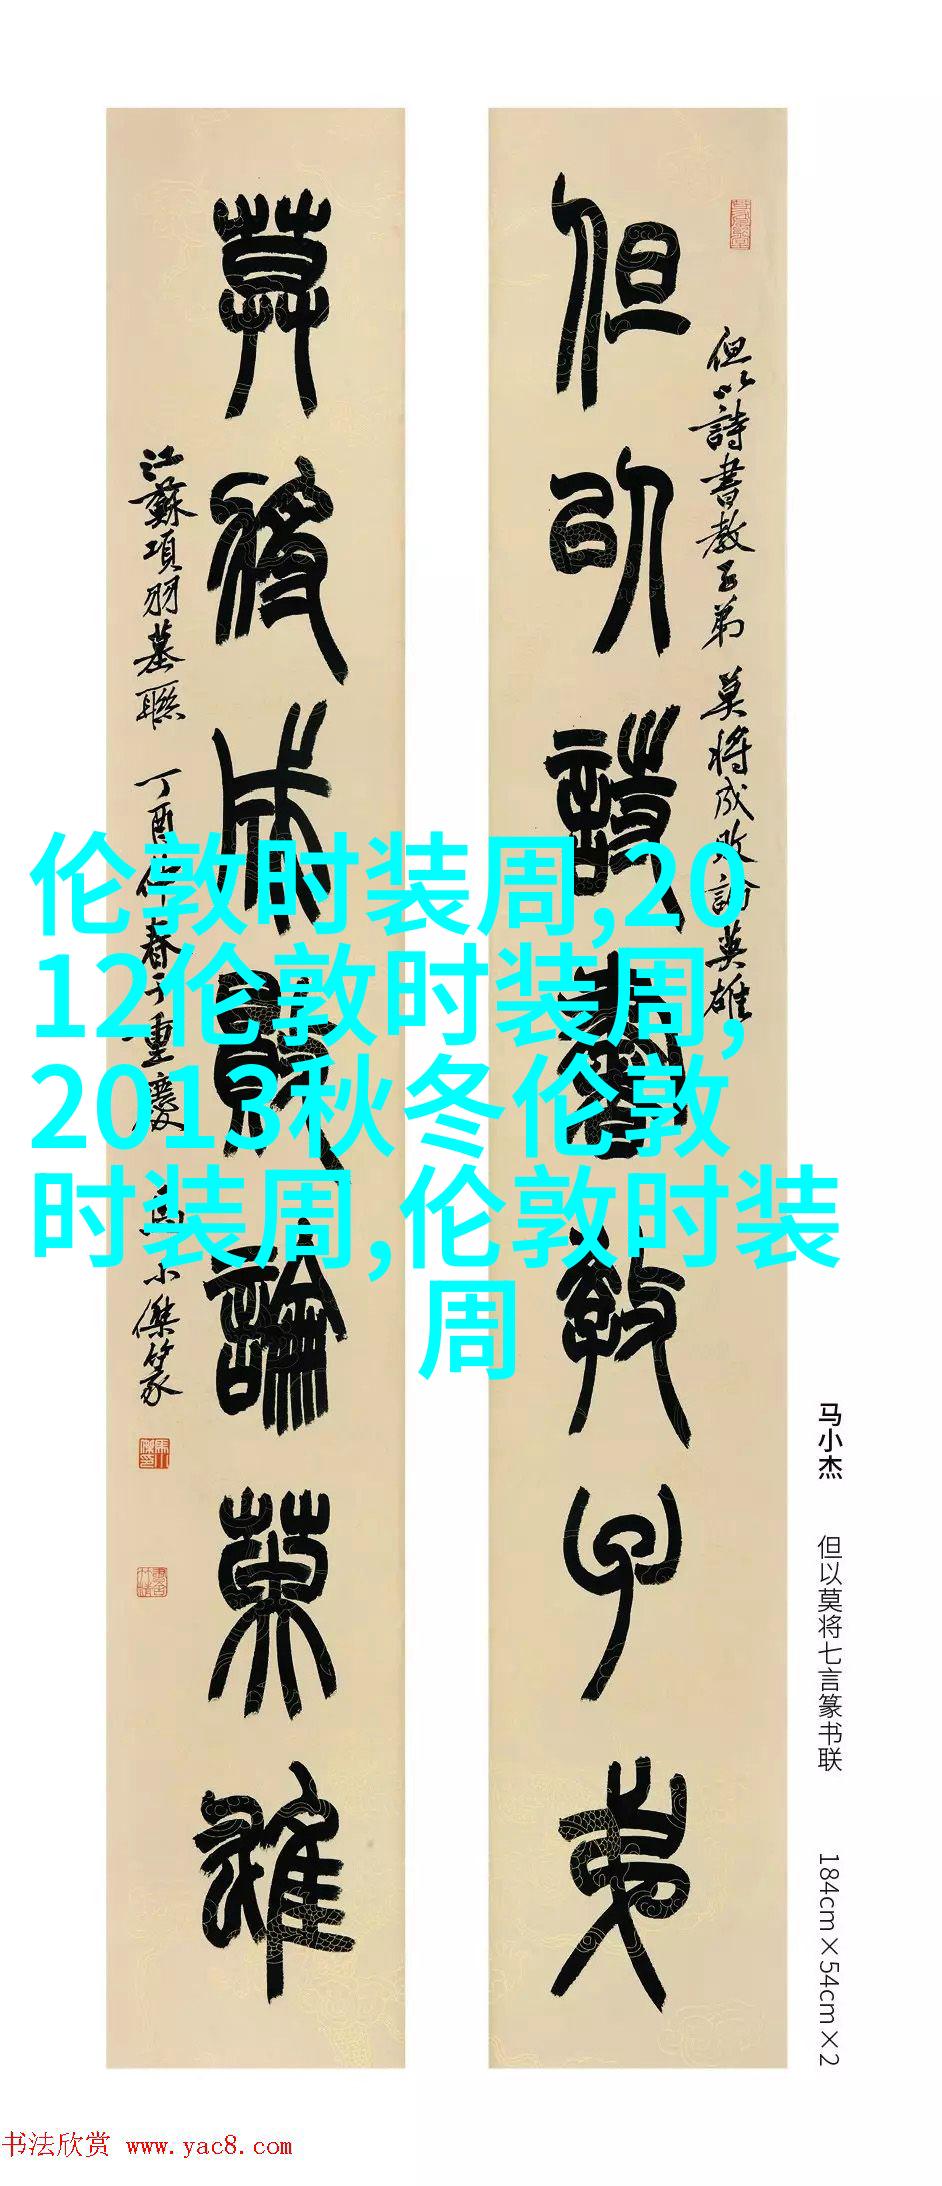 但以詩書教子弟
但以詩書教子弟 莫將成敗論英雄
莫將成敗論英雄
江蘇項羽墓聯 丁酉仲春于重慶 馬小傑篆
伦敦时装周,20
12伦敦时装周,
2013秋冬伦敦
时装周,伦敦时装
周
马小杰 但以莫将七言篆书联 184cm×54cm×2
书法欣赏 www.yac8.com